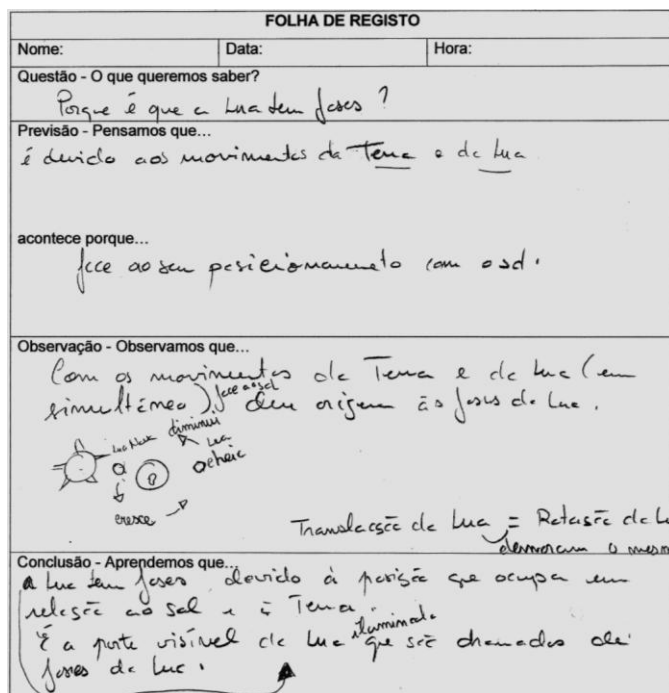 FOLHA DE REGISTO
Nome: Data: Hora:
Questão - O que queremos saber?
Porque é que a Lua tem fases ?
Previsão - Pensamos que...
é devido aos movimentos da Terra e da Lua
acontece porque...
face ao seu posicionamento com o sol.
Observação - Observamos que...
Com os movimentos da Terra e da Lua (em
simultâneo) face ao sol deu origem às fases da Lua.
Lua Nova diminui
Lua
cheia
cresce
Translacção da Lua = Rotação da L
demoram o mesm
Conclusão - Aprendemos que...
a Lua tem fases devido à posição que ocupa em
relação ao sol e à Terra.
É a parte visível da Lua iluminada que são chamadas de
fases da Lua.